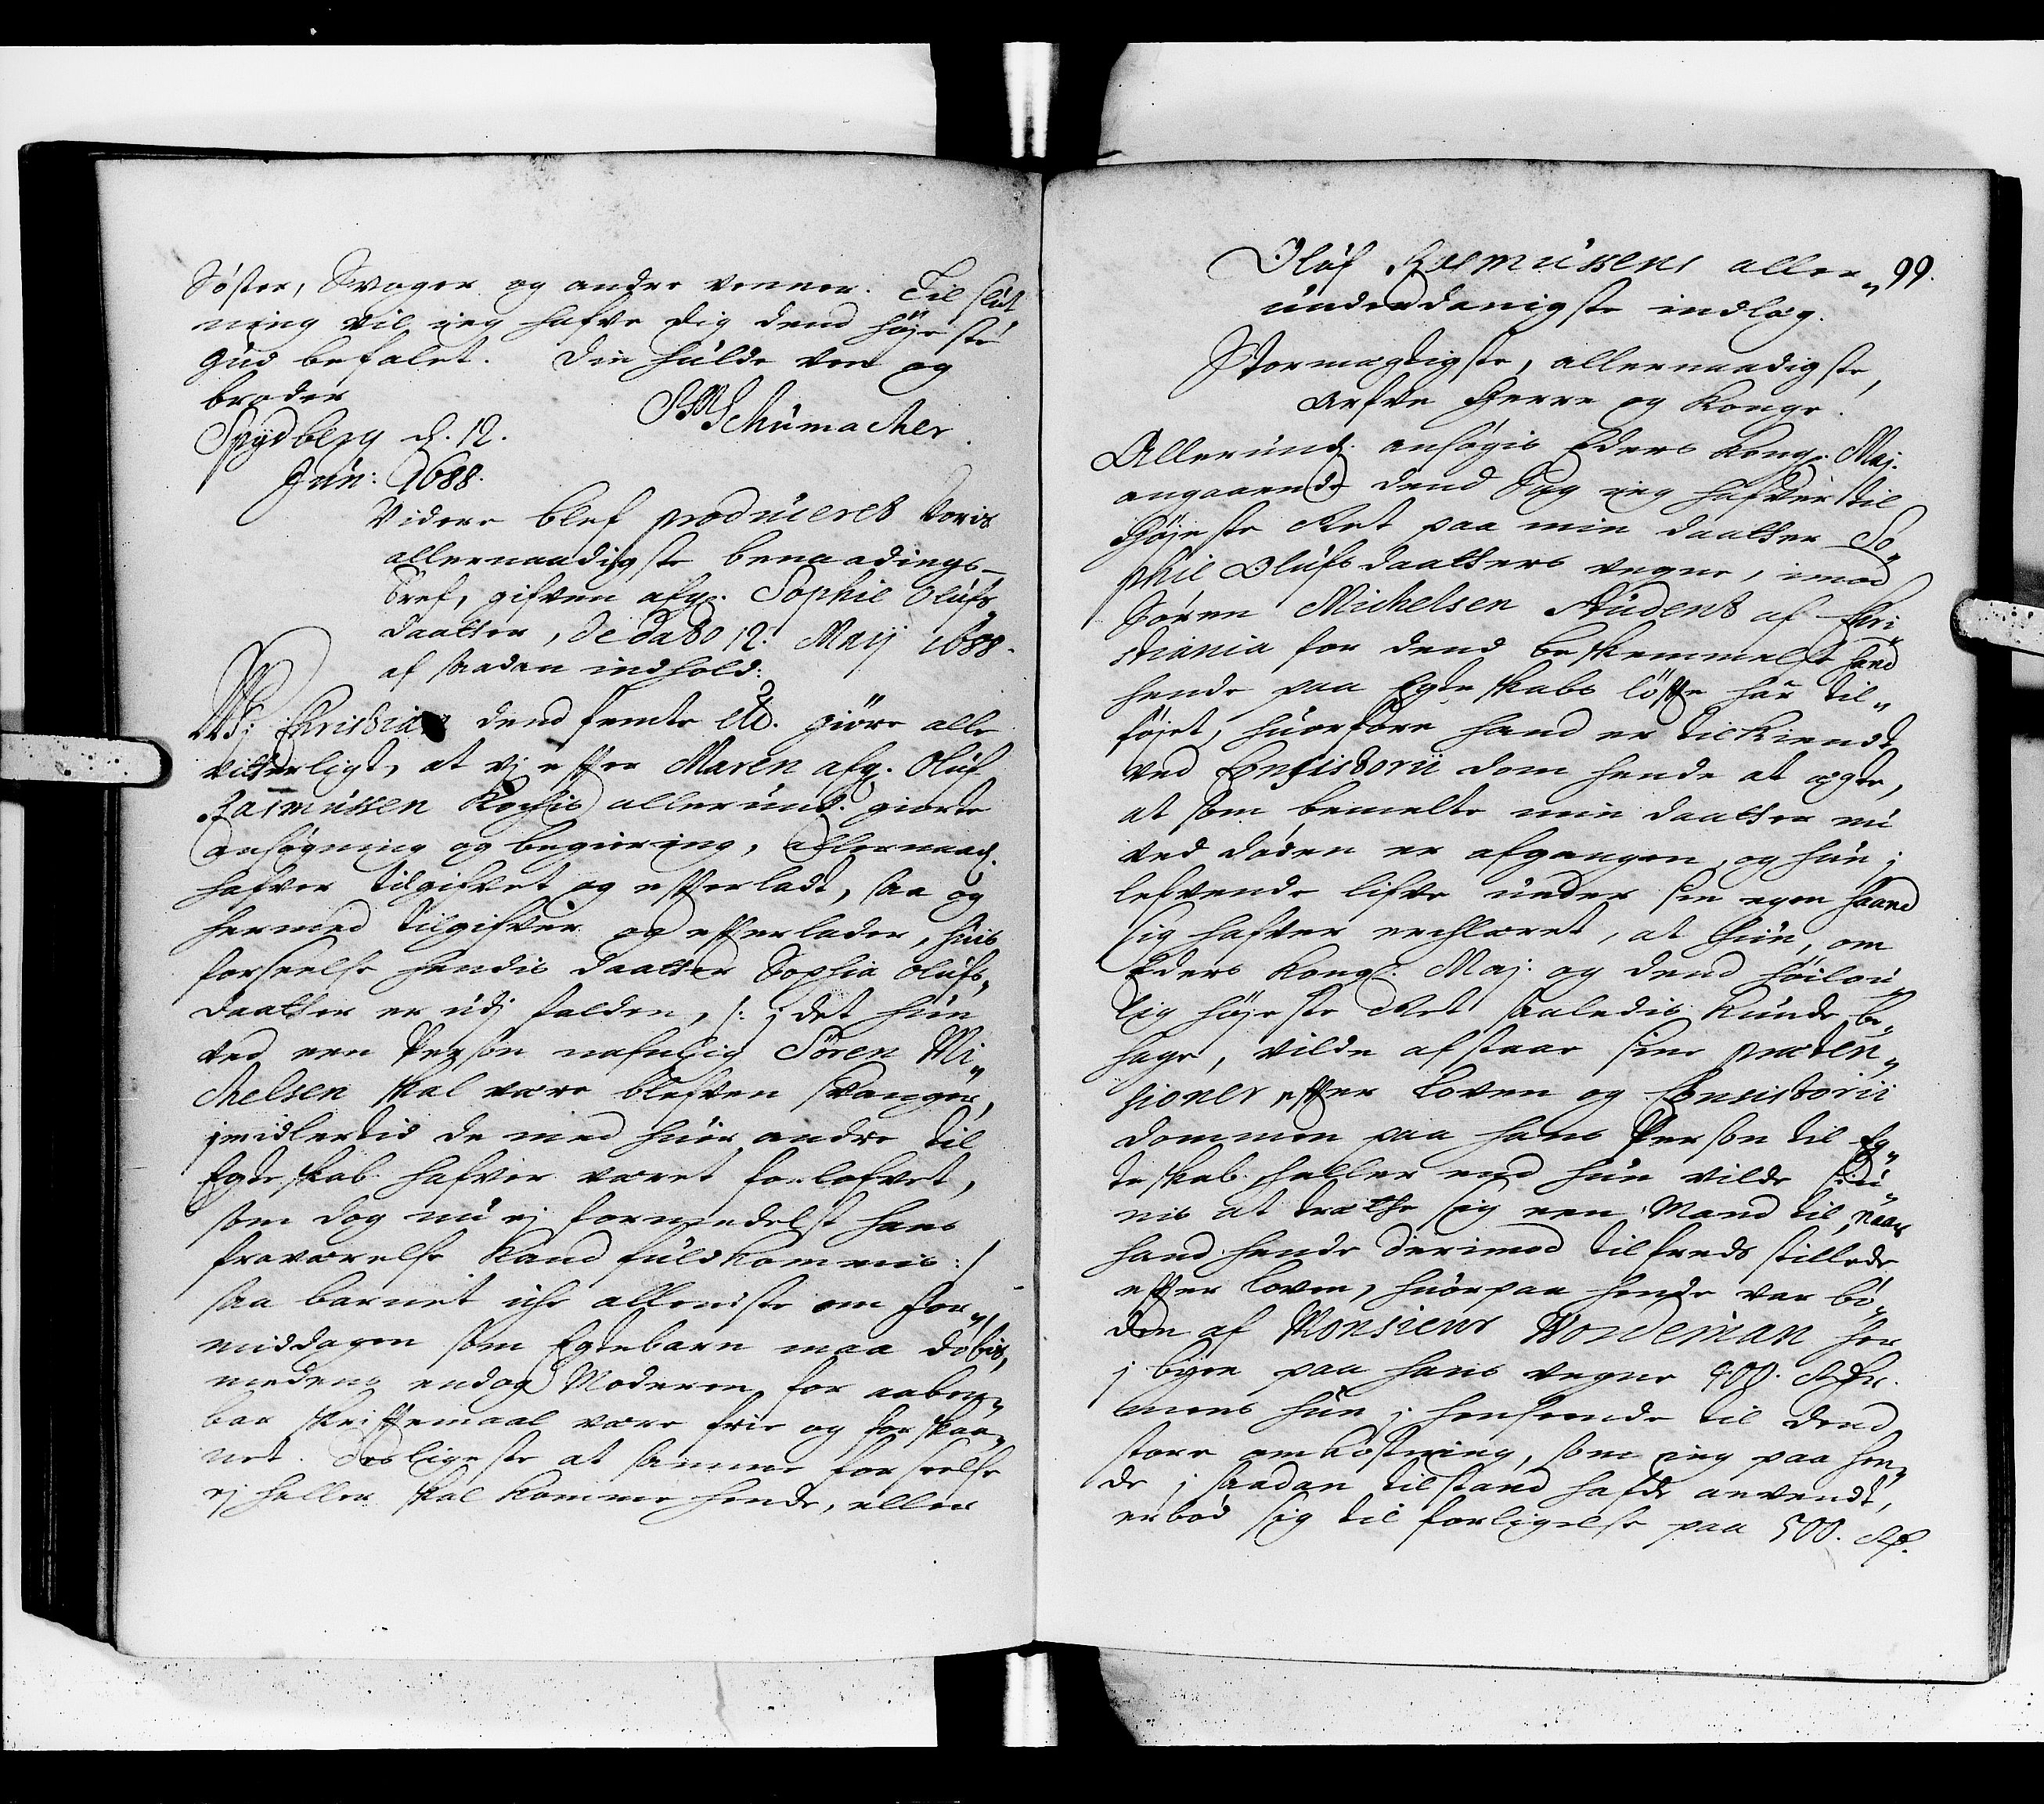 Søster, Svoger og andre venner. Til slut
ning vil ieg hafve dig dend høyeste
Gud befalet. Din hulde ven og
broder
SMSchumacher.
Spydberg d. 12.
Jun: 1688.
Videre blef produceret voris
allernaadigste benaadings-
Bref, gifven afg. Sophie Olufs„
daatter, de dato 12. Maij 1688.
af saadan indhold:
Wj Christian dend femte etc. giøre alle
vitterligt, at vj efter Maren afg. Oluf
Rasmussen Kochis allerund. giorte
ansøgning og begiering, allernaad.
hafver tilgifvet og efterladt, saa og
hermed tilgifver og efterlader, huis
forseelse hendis daatter Sophia Olufs„
daatter er udj falden, /: j det hun
ved een Person nafnlig Sören Mi„
chelsen skal være blefven svanger,
jmidlertid de med huer andre til
Egteskab hafver været forlofvet,
som dog nu ej formedelst hans
fraværelse kand fuldkommis :/
saa barnet iche alleniste om For„
middagen som Egtebarn maa døbis,
medens endog Moderen for aaben„
bar skriftemaal være frie og forskaa„
net. desligeste at samme forseelse
ej heller skal komme hende, eller
Oluf Rasmussens aller„ 99.
underdanigste indlæg.
Stormægtigste, allernaadigste,
Arfve Herre og Konge.
Allerund. ansøgis Eders Kongl. Maj.
angaaende dend Sag ieg hafver til
Høyeste Ret paa min daatter So„
phie Olufsdaatters vegne, imod
Søren Michelsen Student af Chri
stiania for dend beskemmelse hand
hende paa Egteskabs løfte har til„
føjet, huorfore hand er tilkiendt
ved Consistorii dom hende at ægte,
at som bemelte min daatter nu
ved døden er afgangen, og hun j
lefvende lifve under sin egen haand
sig hafver erclæret, at hun, om
Eders Kongl. Maj. og dend høilov„
lig høyeste Ret saaledis kunde be„
hage, vilde afstaae sine præten„
sioner efter Loven og Consistorii
dommen paa hans Person til Eg„
teskab heller end hun vilde
nis at trætte sig een Mand til, naar
hand hende derimod tilfreds stillede
efter loven, huorpaa hende var bø„
den af Monsieur Wordeman her
j byen paa hans vegne 400. Rdr.
mens hun j henseende til dend
store omkostning, som ieg paa hen„
de j saadan tilstand hafde anvendt,
erbød sig til forligelse paa 500. Rd.